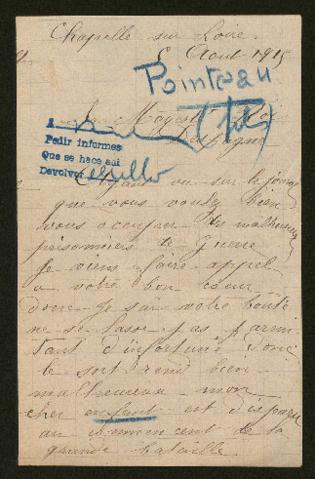 Chapelle sur Loire
8 Aout 1915
Pointeau
Sa Majesté le Roi
d'Espagne
Pedir informes
Que se hace aqui
Devolver
Ayant vu sur le journal
que vous voulez bien
vous occuper des malheureux
prisonniers de Guerre
Je viens faire appel
a votre bon cœur
donc je sais votre bonté
ne se lasse pas parmi
tant d'infortuné donc
le sort rend bien
malheureux mon
cher enfant est disparu
au commencent de la
grande bataille